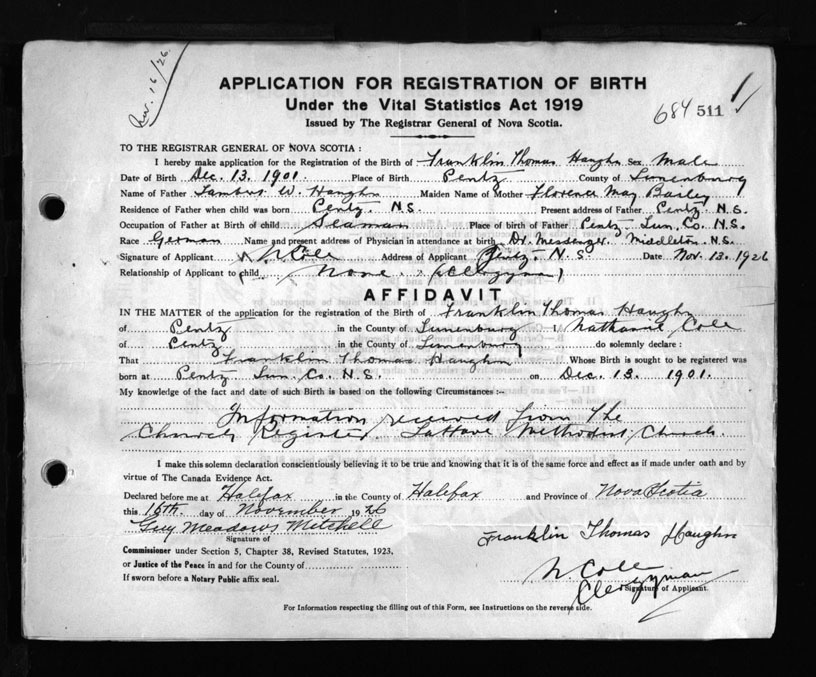 Nov. 16/26.
APPLICATION FOR REGISTRATION OF BIRTH
Under the Vital Statistics Act 1919
Issued by The Registrar General of Nova Scotia.
684 511
TO THE REGISTRAR GENERAL OF NOVA SCOTIA:
I hereby make application for the Registration of the Birth of Franklin Thomas Haughn Sex Male
Date of Birth Dec. 13. 1901. Place of Birth Pentz County of Lunenburg
Name of Father Lambert W. Haughn Maiden Name of Mother Florence May Bailey
Residence of Father when child was born Pentz N.S. Present address of Father Pentz N.S.
Occupation of Father at Birth of child Seaman Place of birth of Father Pentz Lun. Co. N.S.
Race German Name and present address of Physician in attendance at birth Dr. Messenger. Middleton. N.S.
Signature of Applicant N Cole Address of Applicant Pentz. N.S. Date Nov. 13. 1926
Relationship of Applicant to child None. (Clergyman)
AFFIDAVIT
IN THE MATTER of the application for the registration of the Birth of Franklin Thomas Haughn
of Pentz in the County of Lunenburg I, Nathaniel Cole
of Pentz in the County of Lunenburg do solemnly declare:
That Franklin Thomas Haughn Whose Birth is sought to be registered was
born at Pentz Lun. Co. N.S. on Dec. 13. 1901.
My knowledge of the fact and date of such Birth is based on the following Circumstances:—
Information received from the
Church Register. LaHave Methodist Church.
I make this solemn declaration conscientiously believing it to be true and knowing that it is of the same force and effect as if made under oath and by
virtue of The Canada Evidence Act.
Declared before me at Halifax in the County of Halifax and Province of Nova Scotia
this 16th. day of November 1926
Guy Meadows Mitchell
Signature of
Franklin Thomas Haughn
Commissioner under Section 5, Chapter 38, Revised Statutes, 1923,
or Justice of the Peace in and for the County of
N. Cole
If sworn before a Notary Public affix seal.
Clergyman
Signature of Applicant.
For Information respecting the filling out of this Form, see Instructions on the reverse side.